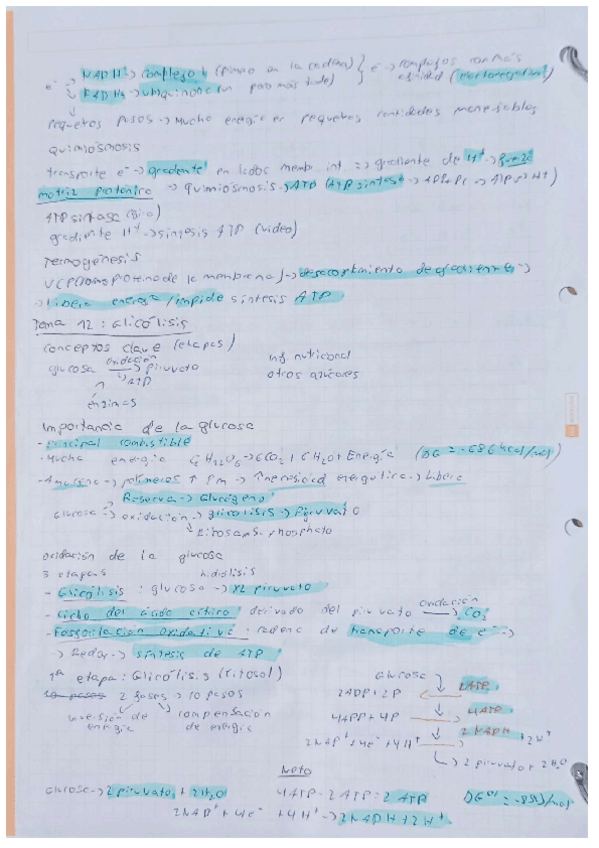 e⁻ → NADH → complejo I (primero en la cadena) } e⁻ → complejos con más
→ FADH₂ → ubiquinona (un paso más tarde) afinidad
pequeños pasos → mucha energía en pequeñas cantidades manejables
Quimiósmosis
transporte e⁻ → gradiente en lados memb. int. => gradiente de H⁺ → fuerza
motriz protónica → quimiósmosis → ATP (ATP sintasa → ADP+Pi → ATP + H⁺)
ATP sintasa (giro)
gradiente H⁺ → síntesis ATP (video)
Termogénesis
UCP (proteína de la membrana) → desacoplamiento de gradiente →
→ libera energía / impide síntesis ATP
Tema 12: Glicólisis
conceptos clave (etapas)
glucosa oxidación → piruvato
inf nutricional
↳ ATP
otros azúcares
enzimas
Importancia de la glucosa
- principal combustible
- Mucha energía C₆H₁₂O₆ → 6CO₂ + 6H₂O + Energía (DG = -686 kcal/mol)
→ polímeros ↑ Pm → energética → libera
Reserva → Glucógeno
Glucosa → oxidación → glicólisis → Piruvato
↳ Ribosa-5-phosphato
oxidación de la glucosa
3 etapas
- Glicólisis: glucosa → x2 piruvato
- Ciclo del ácido cítrico: derivado del piruvato oxidación → CO₂
- Fosforilación oxidativa: cadena de transporte de e⁻ →
→ Redox → síntesis de ATP
1ª etapa: Glicólisis (citosol)
10 pasos 2 fases → 10 pasos
inversión de energía
compensación de energía
Glucosa
2ADP+2P
2ATP
4ADP+4P
4ATP
2NAD⁺+4e⁻+4H⁺ 2NADH + 2H⁺
↳ 2 piruvato + 2H₂O
Neto
Glucosa → 2 piruvato + 2H₂O 4ATP - 2ATP = 2ATP
2NAD⁺ + 4e⁻ + 4H⁺ → 2NADH + 2H⁺